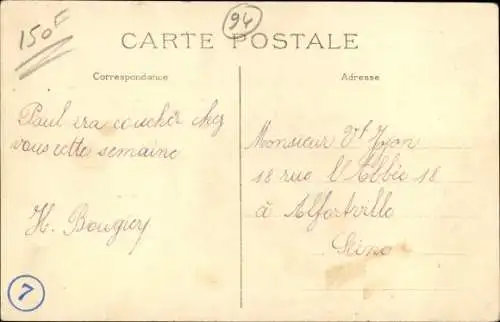 150F
94
CARTE POSTALE
Correspondance
Adresse
Paul ira coucher chez
vous cette semaine
H. Bougicy
Monsieur Vt Joyon
18 rue l'Abbé 18
à Alfortville
Seine
7